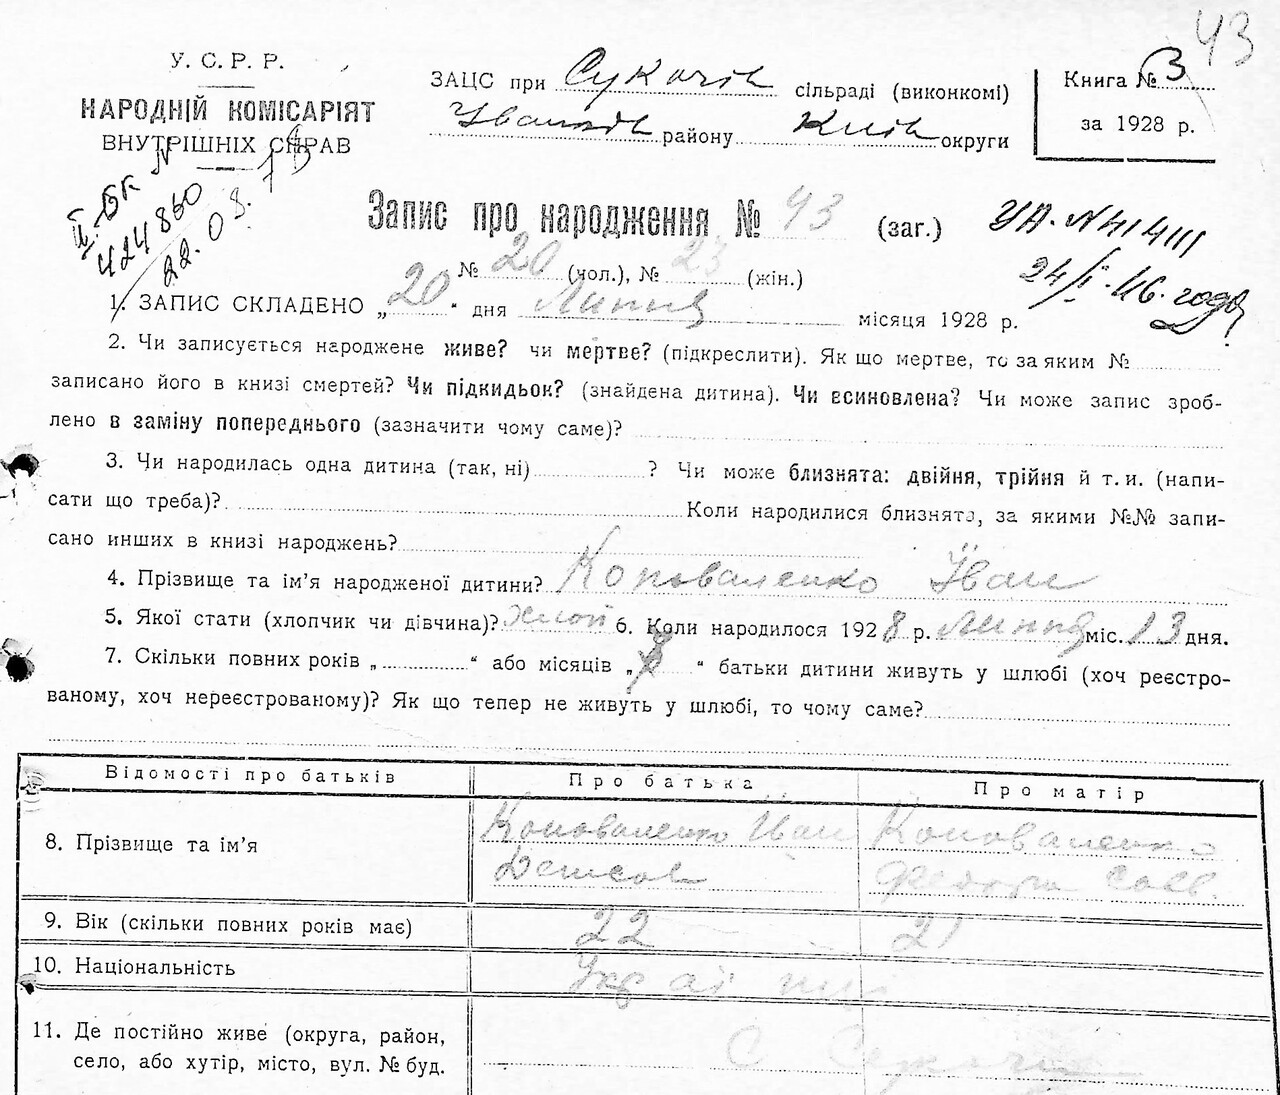 43
У. С. Р. Р.
НАРОДНІЙ КОМІСАРІЯТ
ВНУТРІШНІХ СПРАВ
ЗАЦС при Сукачів сільраді (виконкомі)
Іванків району Київ округи
Книга № 3
за 1928 р.
424860
22.08.
Запис про народження № 43 (заг.)
№ 20 (чол.), № 23 (жін.)
УА. N 41411
24/I-46 года
1. ЗАПИС СКЛАДЕНО „20“ дня Липня місяця 1928 р.
2. Чи записується народжене живе? чи мертве? (підкреслити). Як що мертве, то за яким №
записано його в книзі смертей? Чи підкидьок? (знайдена дитина). Чи всиновлена? Чи може запис зроб-
лено в заміну попереднього (зазначити чому саме)?
3. Чи народилась одна дитина (так, ні) ? Чи може близнята: двійня, трійня й т. и. (напи-
сати що треба)? Коли народилися близнята, за якими №№ запи-
сано инших в книзі народжень?
4. Прізвище та ім’я народженої дитини? Коноваленко Іван
5. Якої стати (хлопчик чи дівчина)? 6. Коли народилося 1928 р. Липня міс. 13 дня.
7. Скільки повних років „ “ або місяців „ “ батьки дитини живуть у шлюбі (хоч реєстро-
ваному, хоч нереєстрованому)? Як що тепер не живуть у шлюбі, то чому саме?
Відомості про батьків Про батька Про матір
8. Прізвище та ім’я Коноваленко Іван Денисов Коноваленко Федора Сав.
9. Вік (скільки повних років має) 22 21
10. Національність Українці
11. Де постійно живе (округа, район,
село, або хутір, місто, вул. № буд. С Сукачі